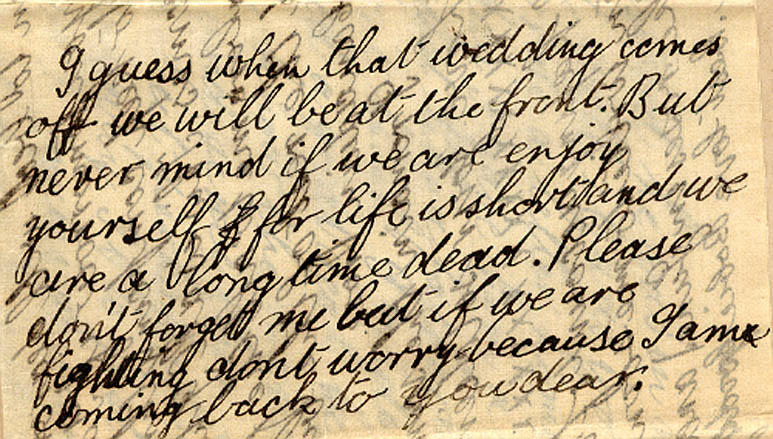 I guess when that wedding comes
off we will be at the front. But
never mind if we are enjoy
yourself for life is short and we
are a long time dead. Please
don't forget me but if we are
fighting dont worry because I am
coming back to you dear.